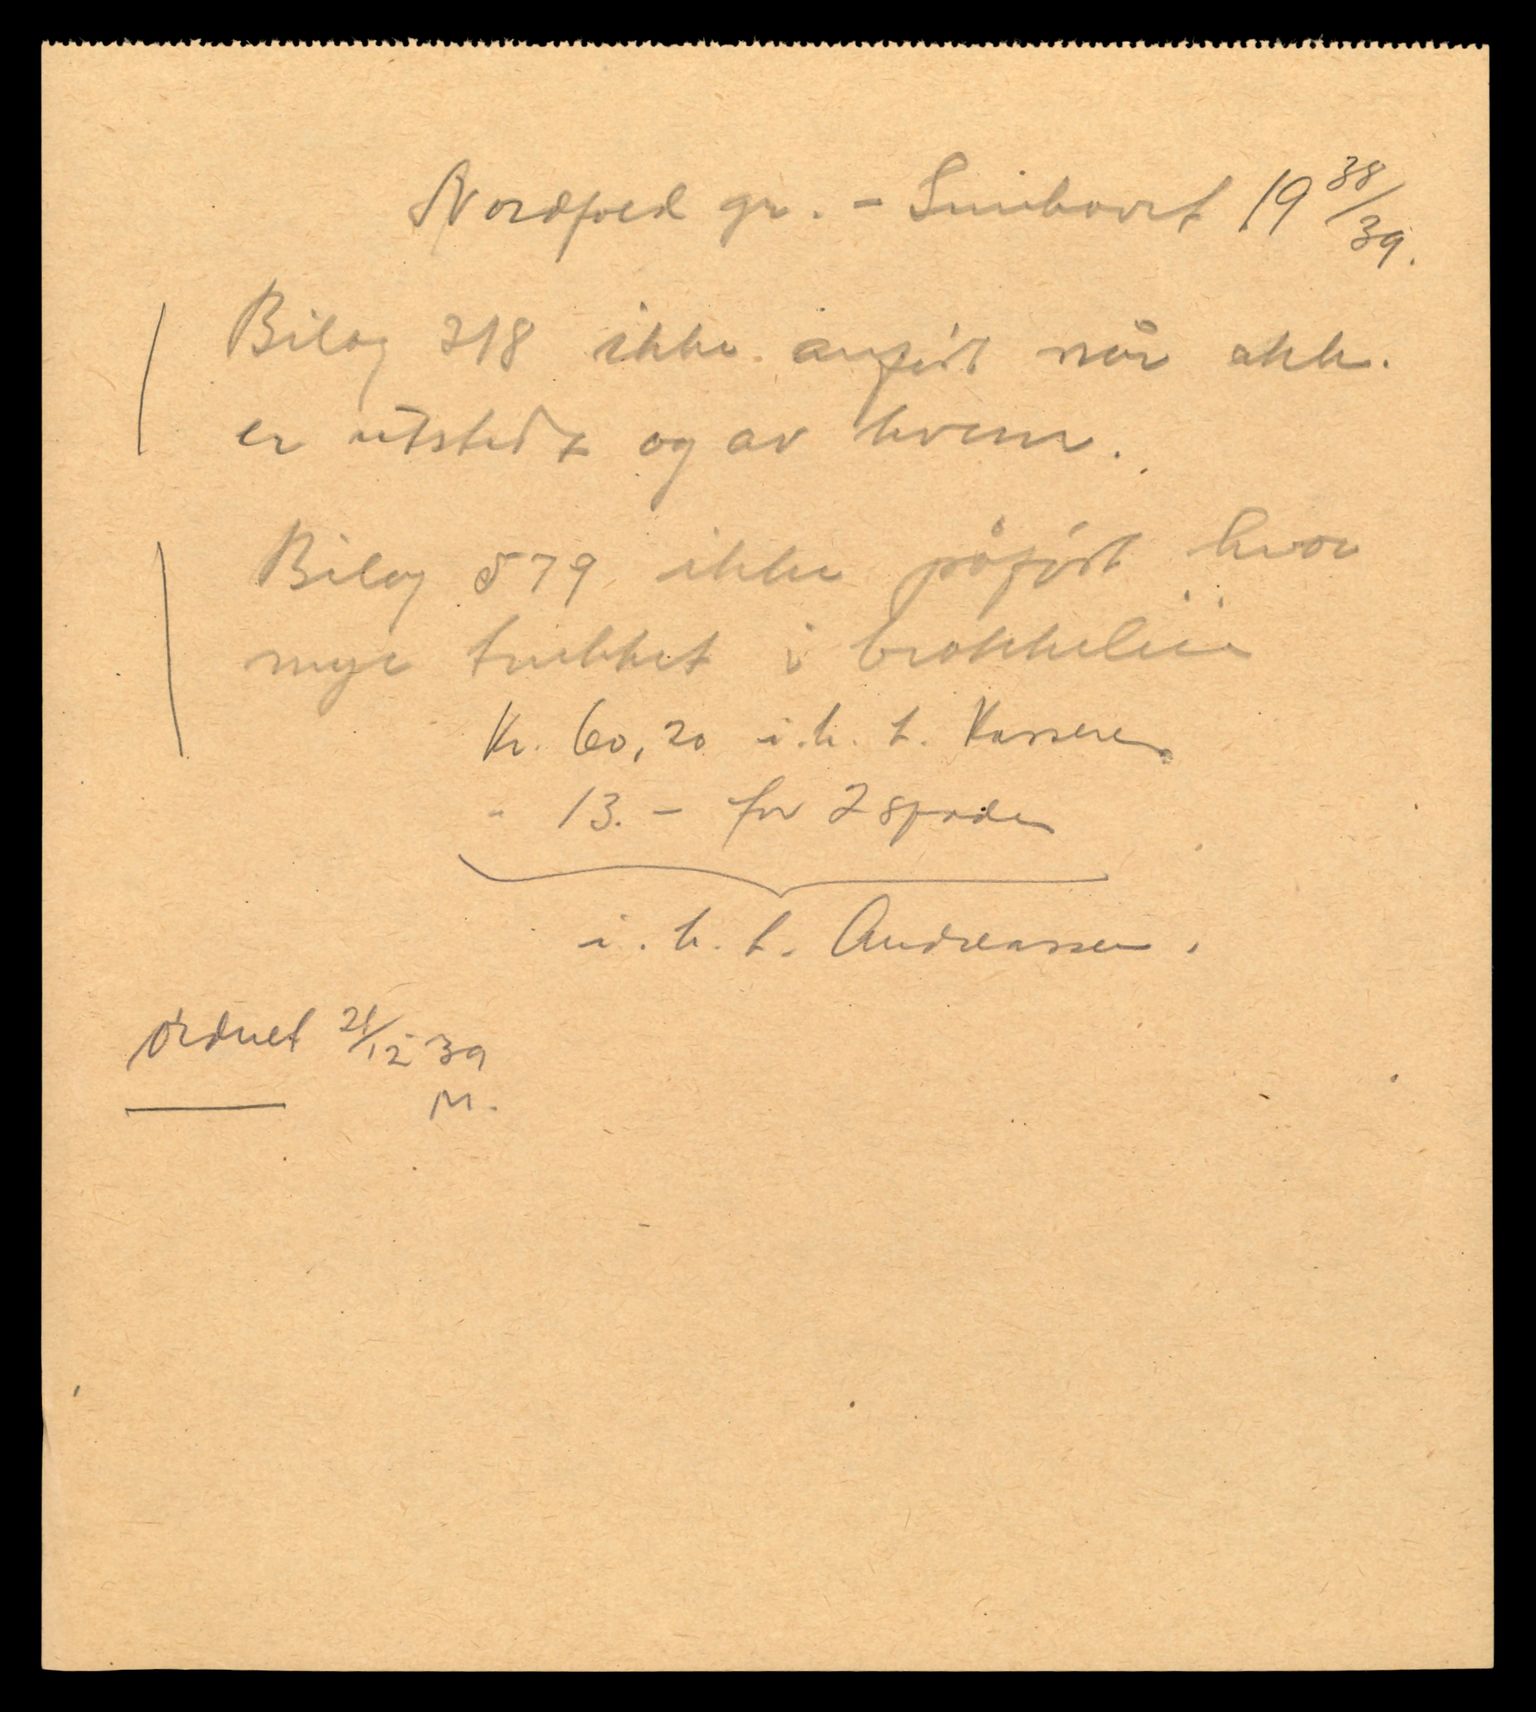 Nordfold gr. - 19 38/39.
Bilag 218 ikke anført når akk.
er utstedt og av hvem.
Bilag 579 ikke påført hvor
mye trukket i brakkeleie
Kr. 60,20 i.h.t. Kasserer
" 13.- for 2 spader
i.h.t. Andreassen.
Ordnet 21/12 39
M.